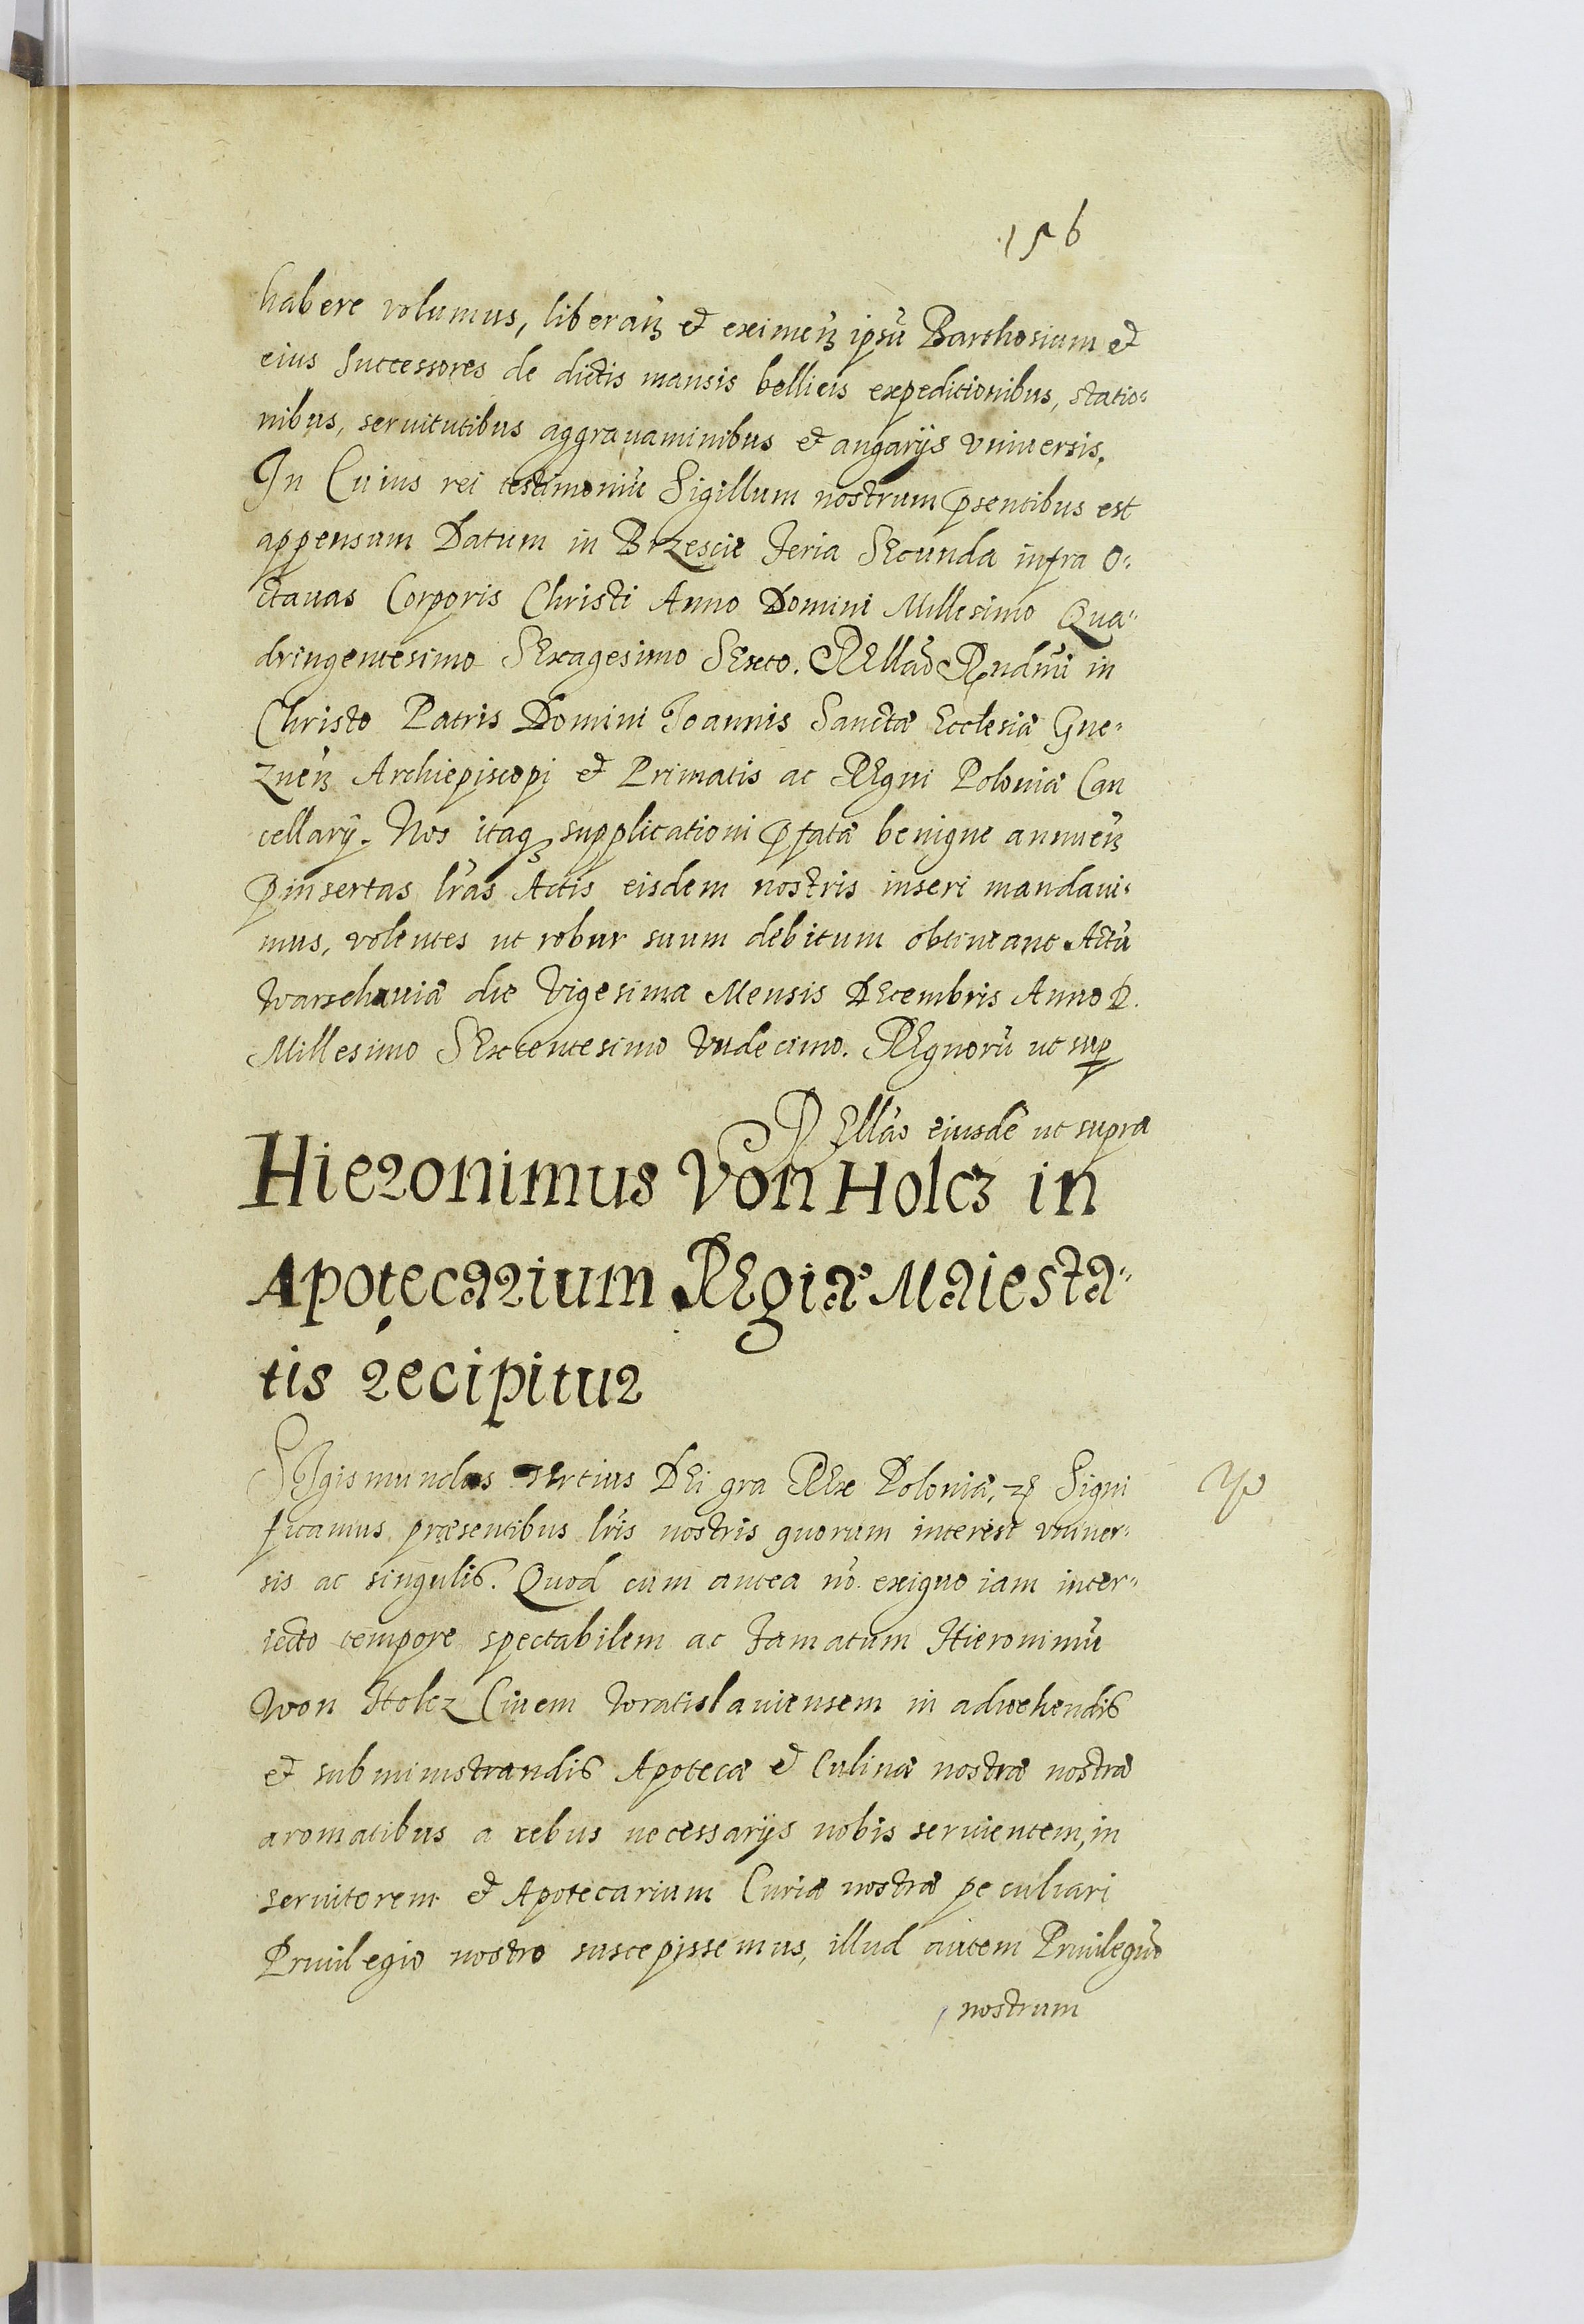 156
habere volumus, liberan̄ et eximen̄ ipsū Barthosium et
eius Successores de dictis mansis bellicis expeditionibus, statio=
nibus, seruitutibus aggrauaminibus et angarijs vniuersis.
In Cuius rei testimoniū Sigillum nostrum pn̄sentibus est
appensum Datum in Brzescie Feria Secunda infra O=
ctauas Corporis Christi Anno Domini Millesimo Qua=
dringentesimo Sexagesimo Sexto. Rellao Rndmi in
Christo Patris Domini Joannis Sanctæ Ecclesiæ Gne=
znen̄ Archiepiscopi et Primatis ac Regni Poloniæ Can
cellarÿ. Nos itaq3 supplicationi pfatæ benigne annuen̄
pinsertas lr̄as Actis eisdem nostris inseri mandaui=
mus, volentes ut robur suum debitum obtineant Actū
Warschauiæ die Vigesima Mensis Decembris Anno D.
Millesimo Sexcentesimo Vndecimo. Regnorū ut sup
Rellao eiusdē ut supra
Hieronimus Von Holcz in
Apotecarium Regiæ Maiesta=
tis recipitur
Sigismundus Tertius Dei gra Rex Poloniæ, ꝛc Signi
ficamus præsentibus lr̄is nostris quorum interest vniuer=
sis ac singulis. Quod cum antea nō exiguo iam inter=
iecto tempore spectabilem ac Famatum Hieronimū
Won Holcz Ciuem Wratislauiensem in aduehendis
et subministrandis Apotecæ et Culinæ nostræ nostræ
aromatibus a rebus necessarijs nobis seruientem, in
seruitorem et Apotecarium Curiæ nostræ peculiari
Priuilegio nostro suscepissemus, illud autem Priuilegiū
nostrum